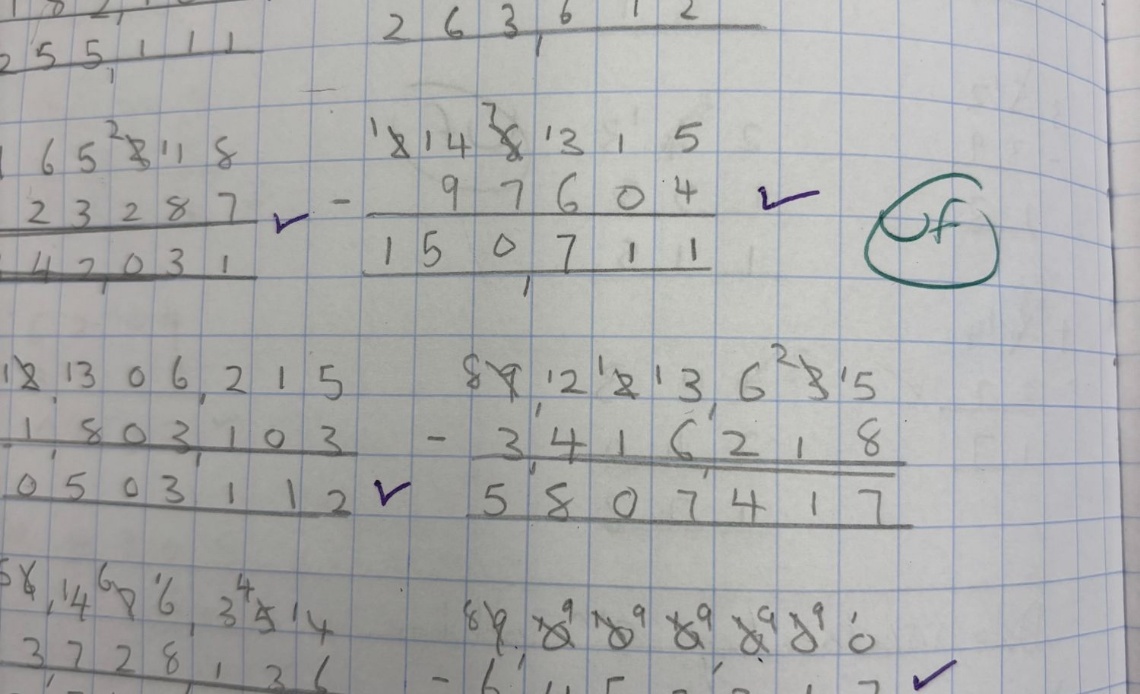 2 5 5, 1 1 1
2 6 3, 6 1 2
6 5 ²3 ¹1 8
2 3 2 8 7 ✓
4 2, 0 3 1
¹2 14 ⁷8 ¹3 1 5
- 9 7 6 0 4 ✓
1 5 0, 7 1 1
¹2, 13 0 6, 2 1 5
1, 8 0 3, 1 0 3
0 5 0 3 1 1 2 ✓
⁸9, ¹2 ¹2 ¹3, 6 ²3 ¹5
- 3, 4 1 6, 2 1 8
5 8 0 7 4 1 7
⁵6, 14 ⁶7 ¹6, 3 ⁴5 ¹4
3 7 2 8 1 3 6